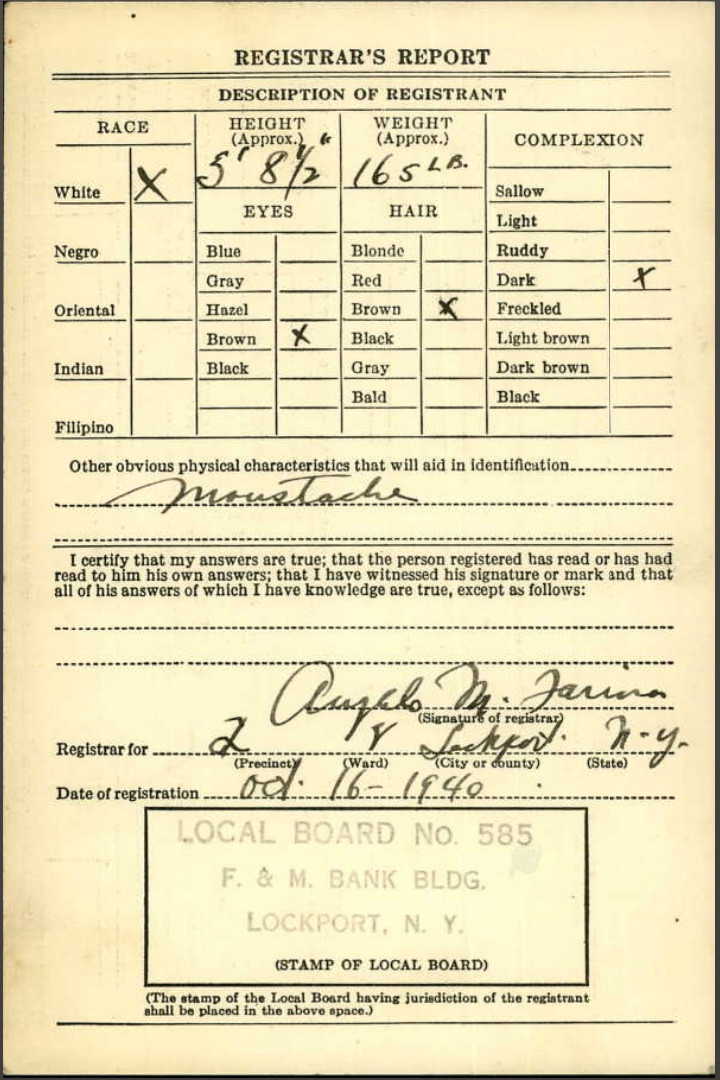 REGISTRAR'S REPORT
DESCRIPTION OF REGISTRANT
RACE
HEIGHT
(Approx.)
WEIGHT
(Approx.)
COMPLEXION
White X
5' 8 1/2"
165 LB.
EYES
HAIR
Sallow
Light
Negro
Blue
Blonde
Ruddy
Gray
Red
Dark X
Oriental
Hazel
Brown X
Freckled
Brown X
Black
Light brown
Indian
Black
Gray
Dark brown
Bald
Black
Filipino
Other obvious physical characteristics that will aid in identification
Moustache
I certify that my answers are true; that the person registered has read or has had
read to him his own answers; that I have witnessed his signature or mark and that
all of his answers of which I have knowledge are true, except as follows:
Angelo M. Farina
(Signature of registrar)
Registrar for 2 8 Lockport. N-Y.
(Precinct) (Ward) (City or county) (State)
Date of registration Oct. 16-1940
LOCAL BOARD No. 585
F. & M. BANK BLDG.
LOCKPORT, N. Y.
(STAMP OF LOCAL BOARD)
(The stamp of the Local Board having jurisdiction of the registrant
shall be placed in the above space.)